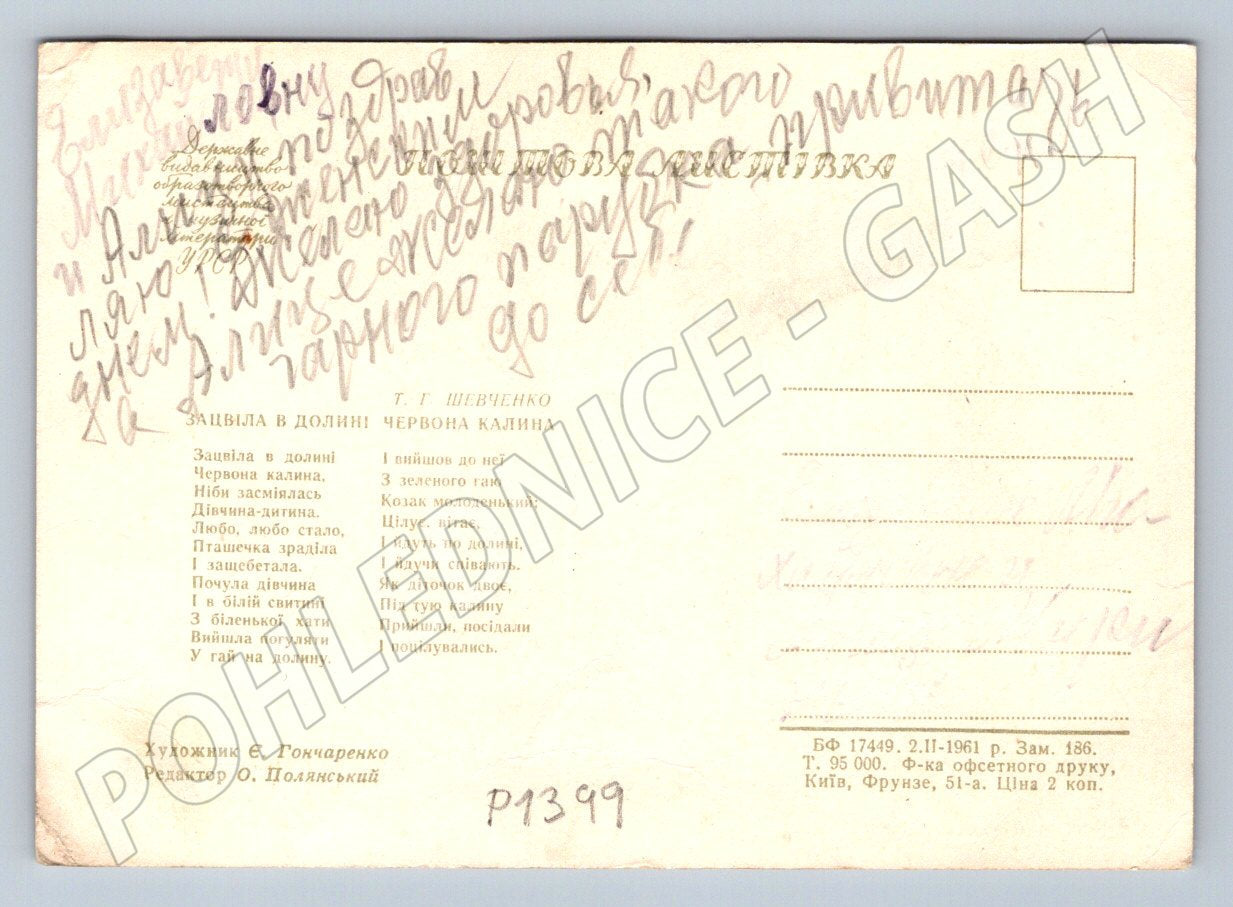 Елизавету
Михайловну
и Алицу поздрав
ляю с женским
днем! Желаю здоровья,
а Алице желаю такого
гарного парубка привитать
до себе
Державне
видавництво
образотворчого
мистецтва
і музичної
літератури
УРСР
ПОШТОВА ЛИСТІВКА
Т. Г. ШЕВЧЕНКО
ЗАЦВІЛА В ДОЛИНІ ЧЕРВОНА КАЛИНА
Зацвіла в долині
Червона калина,
Ніби засміялась
Дівчина-дитина.
Любо, любо стало,
Пташечка зраділа
І защебетала.
Почула дівчина
І в білій свитині
З біленької хати
Вийшла погуляти
У гай на долину.
І вийшов до неї
З зеленого гаю
Козак молоденький;
Цілує, вітає,
І йдуть по долині,
І йдучи співають.
Як діточок двоє,
Під тую калину
Прийшли, посідали
І поцілувались.
Художник Є. Гончаренко
Редактор О. Полянський
БФ 17449. 2.II-1961 р. Зам. 186.
Т. 95 000. Ф-ка офсетного друку,
Київ, Фрунзе, 51-а. Ціна 2 коп.
P1399
POHLEDNICE - GASH